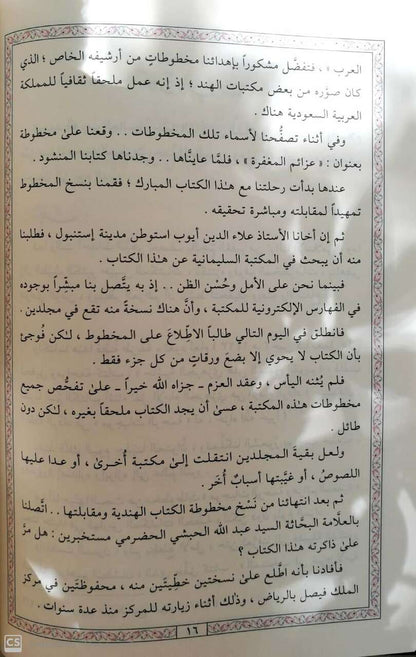 العرب » ، فتفضَّل مشكوراً بإهدائنا مخطوطاتٍ من أرشيفه الخاص ؛ الذي
كان صوَّره من بعض مكتبات الهند ؛ إذ إنه عمل ملحقاً ثقافياً للمملكة
العربية السعودية هناك .
وفي أثناء تصفُّحنا لأسماء تلك المخطوطات . . وقعنا علىٰ مخطوطة
بعنوان : « عزائم المغفرة » ، فلمَّا عاينَّاها . . وجدناها كتابنا المنشود .
عندها بدأت رحلتنا مع هـٰذا الكتاب المبارك ؛ فقمنا بنسخ المخطوط
تمهيداً لمقابلته ومباشرة تحقيقه .
ثم إن أخانا الأستاذ علاء الدين أيوب استوطن مدينة إستنبول ، فطلبنا
منه أن يبحث في المكتبة السليمانية عن هـٰذا الكتاب .
فبينما نحن على الأمل وحُسْن الظن . . إذ به يتَّصل بنا مبشِّراً بوجوده
في الفهارس الإلكترونية للمكتبة ، وأنَّ هناك نسخةً منه تقع في مجلدين .
فانطلق في اليوم التالي طالباً الاطِّلاعَ على المخطوط ، لـٰكن فُوجئ
بأن الكتاب لا يحوي إلا بضعَ ورقاتٍ من كل جزء فقط .
فلم يُثنه اليأس ، وعقد العزم ـ جزاه الله خيراً ـ علىٰ تفحُّص جميع
مخطوطات هـٰذه المكتبة ، عسىٰ أن يجد الكتاب ملحقاً بغيره ، لـٰكن دون
طائل .
ولعل بقيةَ المجلدين انتقلت إلىٰ مكتبة أُخرىٰ ، أو عدا عليها
اللصوصُ ، أو غيَّبتها أسبابٌ أُخَر .
ثم بعد انتهائنا من نَسْخ مخطوطة الكتاب الهندية ومقابلتها . . اتَّصلنا
بالعلَّامة البحَّاثة السيد عبد الله الحبشي الحضرمي مستخبرين : هل مرَّ
علىٰ ذاكرته هـٰذا الكتاب ؟
فأفادنا بأنه اطَّلع علىٰ نسختين خطِّيتَين منه ، محفوظتَين في مركز
الملك فيصل بالرياض ، وذلك أثناء زيارته للمركز منذ عدة سنوات .
١٦
CS